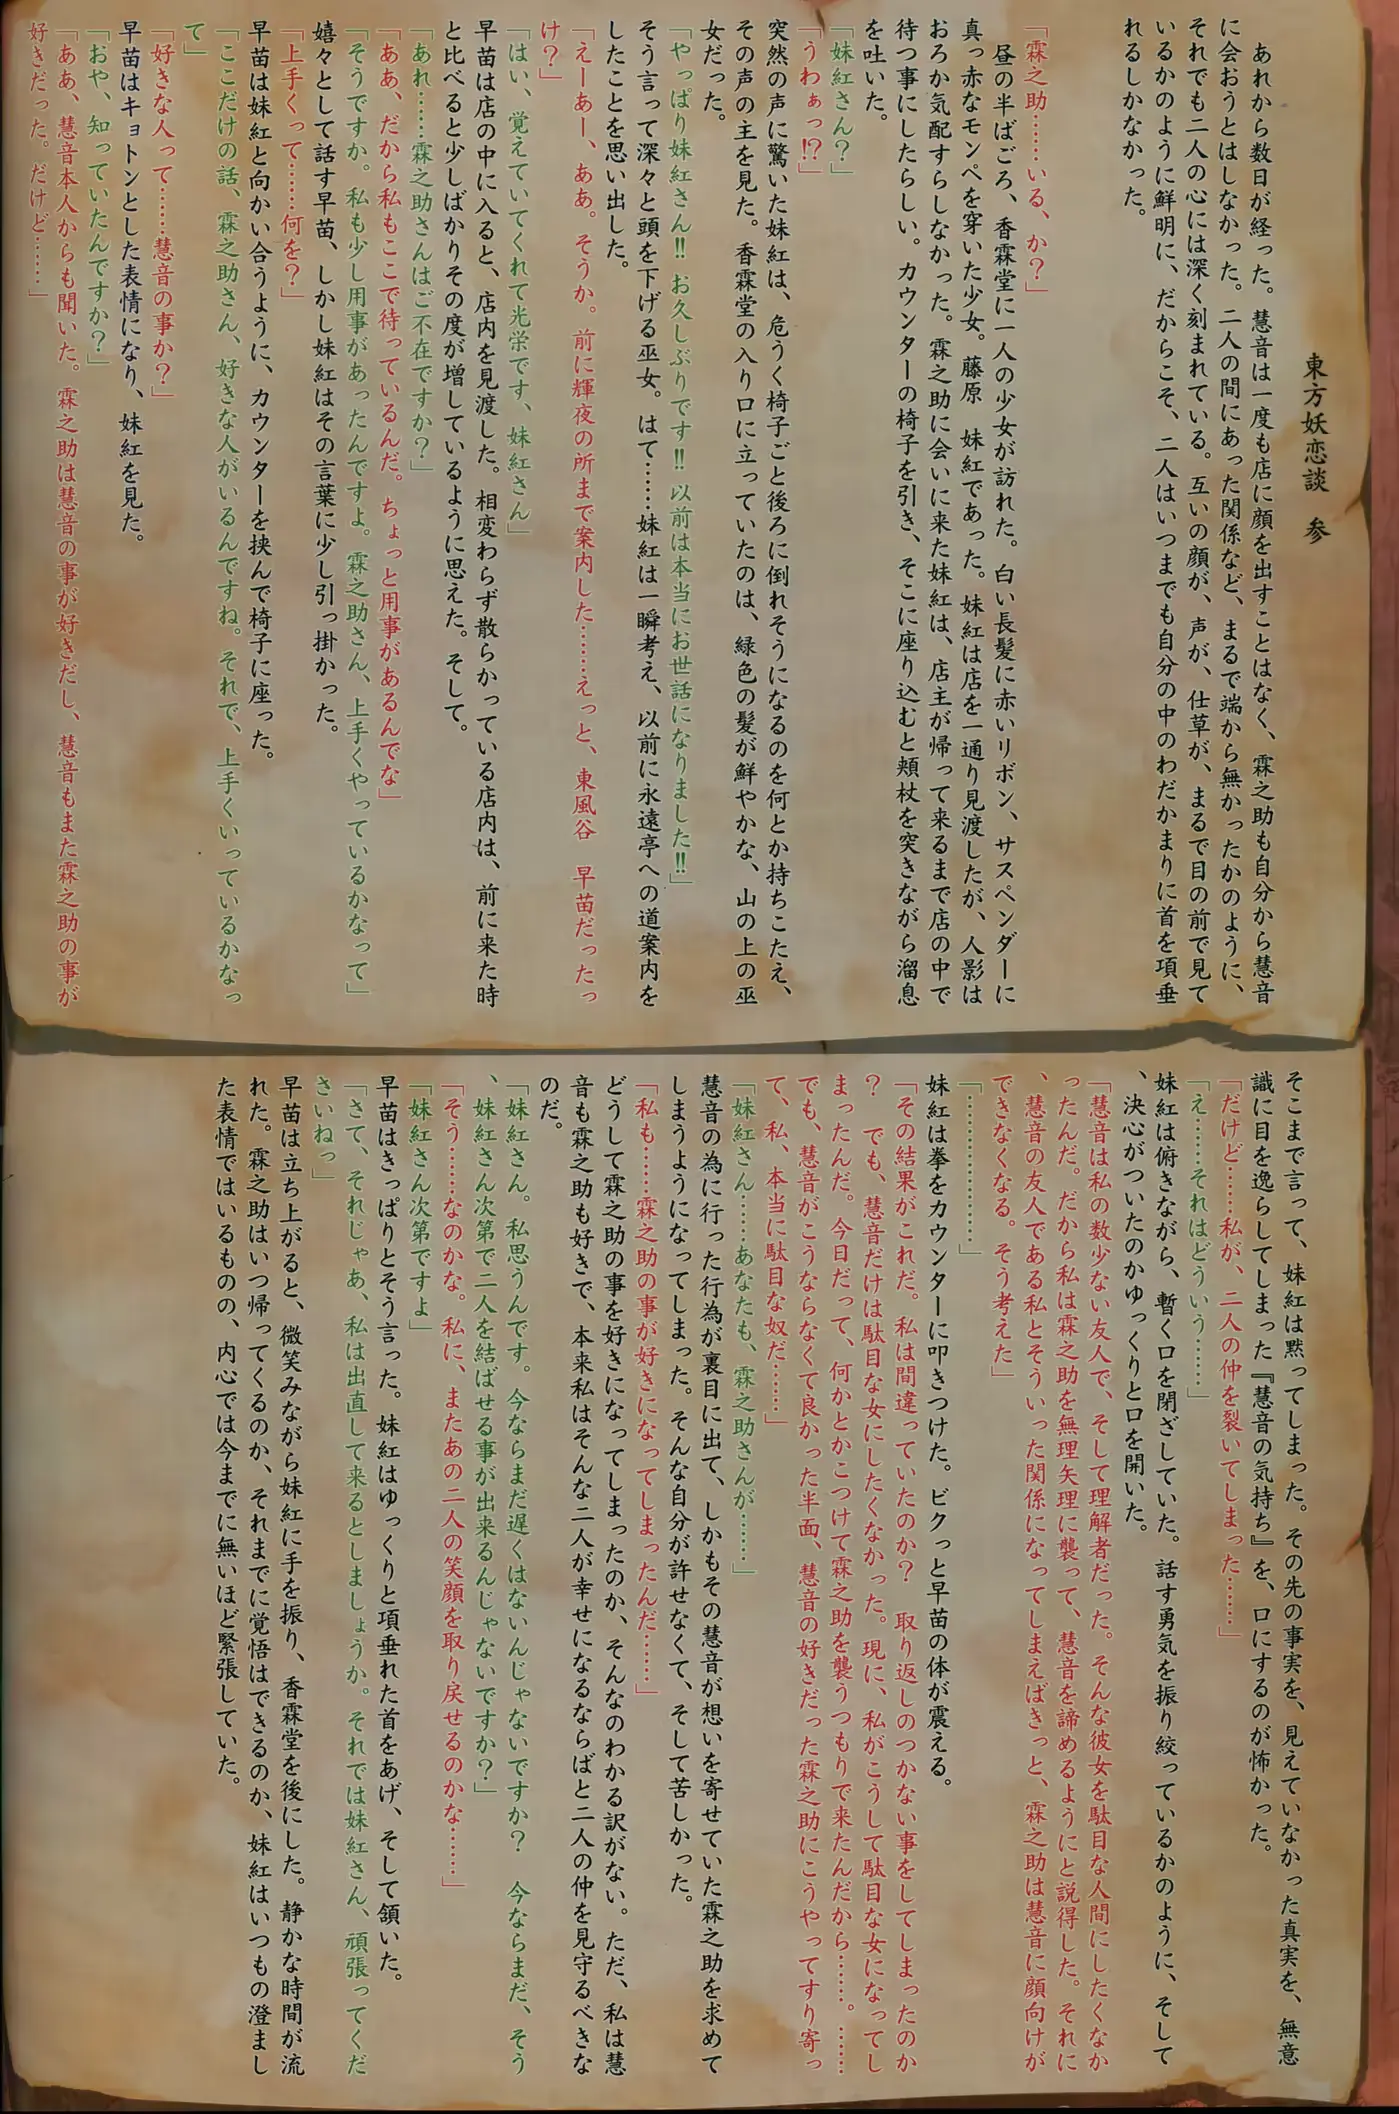 東方妖恋談　参
　あれから数日が経った。慧音は一度も店に顔を出すことはなく、霖之助も自分から慧音
に会おうとはしなかった。二人の間にあった関係など、まるで端から無かったかのように、
それでも二人の心には深く刻まれている。互いの顔が、声が、仕草が、まるで目の前で見て
いるかのように鮮明に、だからこそ、二人はいつまでも自分の中のわだかまりに首を項垂
れるしかなかった。
「霖之助……いる、か？」
　昼の半ばごろ、香霖堂に一人の少女が訪れた。白い長髪に赤いリボン、サスペンダーに
真っ赤なモンペを穿いた少女。藤原　妹紅であった。妹紅は店を一通り見渡したが、人影は
おろか気配すらしなかった。霖之助に会いに来た妹紅は、店主が帰って来るまで店の中で
待つ事にしたらしい。カウンターの椅子を引き、そこに座り込むと頬杖を突きながら溜息
を吐いた。
「妹紅さん？」
「うわぁっ!?」
突然の声に驚いた妹紅は、危うく椅子ごと後ろに倒れそうになるのを何とか持ちこたえ、
その声の主を見た。香霖堂の入り口に立っていたのは、緑色の髪が鮮やかな、山の上の巫
女だった。
「やっぱり妹紅さん!! お久しぶりです!! 以前は本当にお世話になりました!!」
そう言って深々と頭を下げる巫女。はて……妹紅は一瞬考え、以前に永遠亭への道案内を
したことを思い出した。
「えーあー、ああ。そうか。前に輝夜の所まで案内した………えっと、東風谷　早苗だったっ
け？」
「はい、覚えていてくれて光栄です、妹紅さん」
早苗は店の中に入ると、店内を見渡した。相変わらず散らかっている店内は、前に来た時
と比べると少しばかりその度が増しているように思えた。そして。
「あれ……霖之助さんはご不在ですか？」
「ああ、だから私もここで待っているんだ。ちょっと用事があるんでな」
「そうですか。私も少し用事があったんですよ。霖之助さん、上手くやっているかなって」
嬉々として話す早苗、しかし妹紅はその言葉に少し引っ掛かった。
「上手くって……何を？」
早苗は妹紅と向かい合うように、カウンターを挟んで椅子に座った。
「ここだけの話、霖之助さん、好きな人がいるんですね。それで、上手くいっているかなっ
て」
「好きな人って………慧音の事か？」
早苗はキョトンとした表情になり、妹紅を見た。
「おや、知っていたんですか？」
「ああ、慧音本人からも聞いた。霖之助は慧音の事が好きだし、慧音もまた霖之助の事が
好きだった。だけど……」
そこまで言って、妹紅は黙ってしまった。その先の事実を、見えていなかった真実を、無意
識に目を逸らしてしまった『慧音の気持ち』を、口にするのが怖かった。
「だけど……私が、二人の仲を裂いてしまった……」
「え……それはどういう……」
妹紅は俯きながら、暫く口を閉ざしていた。話す勇気を振り絞っているかのように、そして
、決心がついたのかゆっくりと口を開いた。
「慧音は私の数少ない友人で、そして理解者だった。そんな彼女を駄目な人間にしたくなか
ったんだ。だから私は霖之助を無理矢理に襲って、慧音を諦めるようにと説得した。それに
、慧音の友人である私とそういった関係になってしまえばきっと、霖之助は慧音に顔向けが
できなくなる。そう考えた」
「………………」
妹紅は拳をカウンターに叩きつけた。ビクっと早苗の体が震える。
「その結果がこれだ。私は間違っていたのか？　取り返しのつかない事をしてしまったのか
？　でも、慧音だけは駄目な女にしたくなかった。現に、私がこうして駄目な女になってし
まったんだ。今日だって、何かとかこつけて霖之助を襲うつもりで来たんだから……。………
でも、慧音がこうならなくて良かった半面、慧音の好きだった霖之助にこうやってすり寄っ
て、私、本当に駄目な奴だ……」
「妹紅さん……あなたも、霖之助さんが……」
慧音の為に行った行為が裏目に出て、しかもその慧音が想いを寄せていた霖之助を求めて
しまうようになってしまった。そんな自分が許せなくて、そして苦しかった。
「私も……霖之助の事が好きになってしまったんだ……」
どうして霖之助の事を好きになってしまったのか、そんなのわかる訳がない。ただ、私は慧
音も霖之助も好きで、本来私はそんな二人が幸せになるならばと二人の仲を見守るべきな
のだ。
「妹紅さん。私思うんです。今ならまだ遅くはないんじゃないですか？　今ならまだ、そう
、妹紅さん次第で二人を結ばせる事が出来るんじゃないですか？」
「そう……なのかな。私に、またあの二人の笑顔を取り戻せるのかな……」
「妹紅さん次第ですよ」
早苗はきっぱりとそう言った。妹紅はゆっくりと項垂れた首をあげ、そして頷いた。
「さて、それじゃあ、私は出直して来るとしましょうか。それでは妹紅さん、頑張ってくだ
さいねっ」
早苗は立ち上がると、微笑みながら妹紅に手を振り、香霖堂を後にした。静かな時間が流
れた。霖之助はいつ帰ってくるのか、それまでに覚悟はできるのか、妹紅はいつもの澄まし
た表情ではいるものの、内心では今までに無いほど緊張していた。